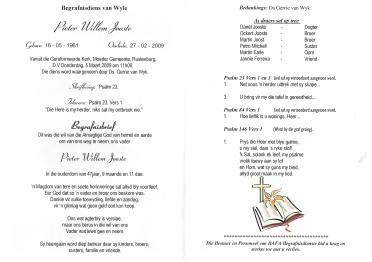 Begrafnisdiens van Wyle
Pieter Willem Jooste
Gebore: 16 - 05 - 1961 Oorlede: 27 - 02 - 2009
Vanuit die Gereformeerde Kerk, Moeder Gemeente, Rustenburg,
D.V Donderdag, 5 Maart 2009 om 11h00.
Die diens word waargeneem deur Ds. Gerrie van Wyk.
Skriflesing: Psalm 23.
Teksvers: Psalm 23. Vers 1
"Die Here is my herder, niks sal my ontbreek nie."
Begrafnisbrief
Dit was die wil van die Almagtige God van hemel en aarde
om van ons weg te neem, ons vader
Pieter Willem Jooste
In die ouderdom van 47jaar, 9 maande en 11 dae.
'n Magdom van tere en soete herinnerings sal altyd by voortleef.
Eer God dat so 'n vader en broer ons beskore was.
Dankie vir sulke toewyding, liefde en aandag,
vir 'n glimlag wat geen ooit ons kan gee.
Ons wat agterbly is verslae,
maar ons berus in die wil van ons
Vader wat lewe gee en neem.
Sy heengaan word diep betreur deur sy kinders, broers,
susters, familie en vriende.
Bedankings: Ds Gerrie van Wyk.
As draers sal op tree
Daniel Jooste - Dogter
Ockert Jooste - Broer
Martin Joost - Broer
Petro Mitchell - Suster
Martin Earle - Oom
Jannie Ferreira - Vriend
Psalm 23 Vers 1 en 3
1. Net soos 'n herder uittrek met sy skape...
3. U bring vir my die tafel in gereedheid....
Psalm 84 Vers 1
1. Hoe lieflik is u wonings, Heer...
Psalm 146 Vers 1 (Word by die graf gesing).
1. Prys die Heer met blye galme,
o my siel, daar 's ryke stof!
'k Sal, solank ek leef, my psalme
vrolik toewy aan sy lof
en Hom, wat sy guns my bied
altyd groot maak in my lied.
Die Bestuur en Personeel van BAFA Begrafnisdienste bid u koeg en
sterkte toe met u verlies.